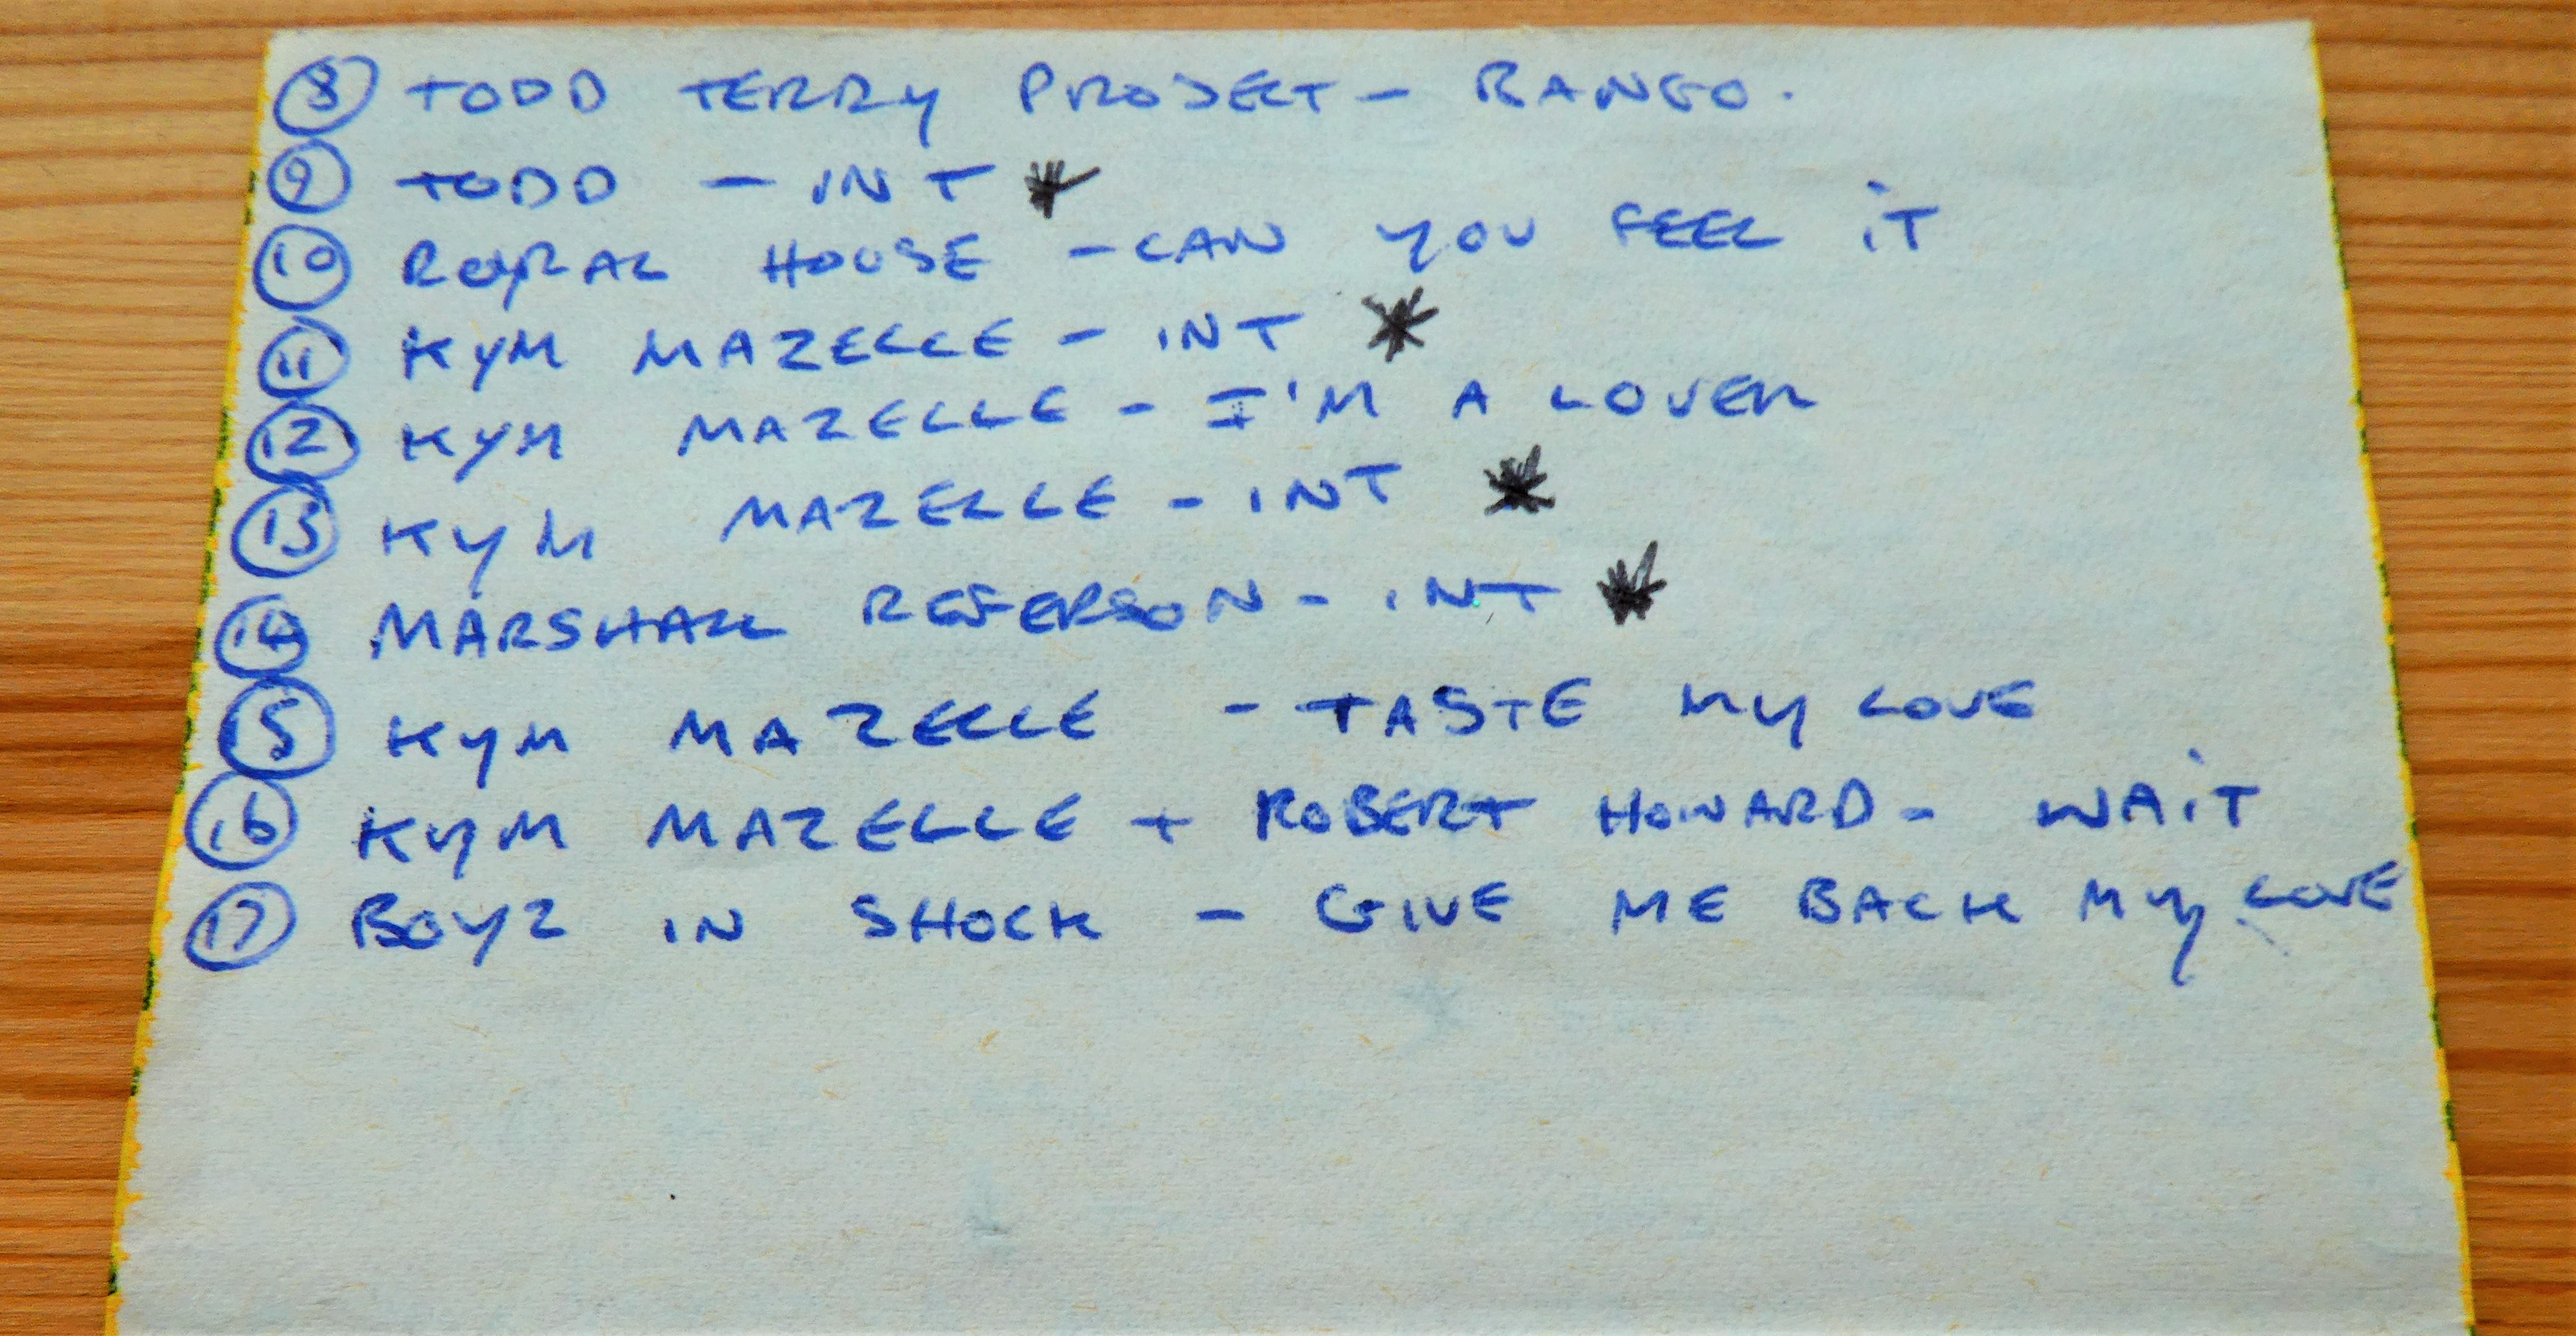 8 TODD TERRY PROJECT - BANGO.
9 TODD - INT *
10 ROYRAL HOUSE - CAN YOU FEEL iT
11 KYM MAZELLE - INT *
12 KYM MAZELLE - I'M A LOVER
13 KYM MAZELLE - INT *
14 MARSHALL REFERSON - INT *
15 KYM MAZELLE - TASTE MY LOVE
16 KYM MAZELLE + ROBERT HOWARD - WAiT
17 BOYZ IN SHOCK - GIVE ME BACK MY LOVE